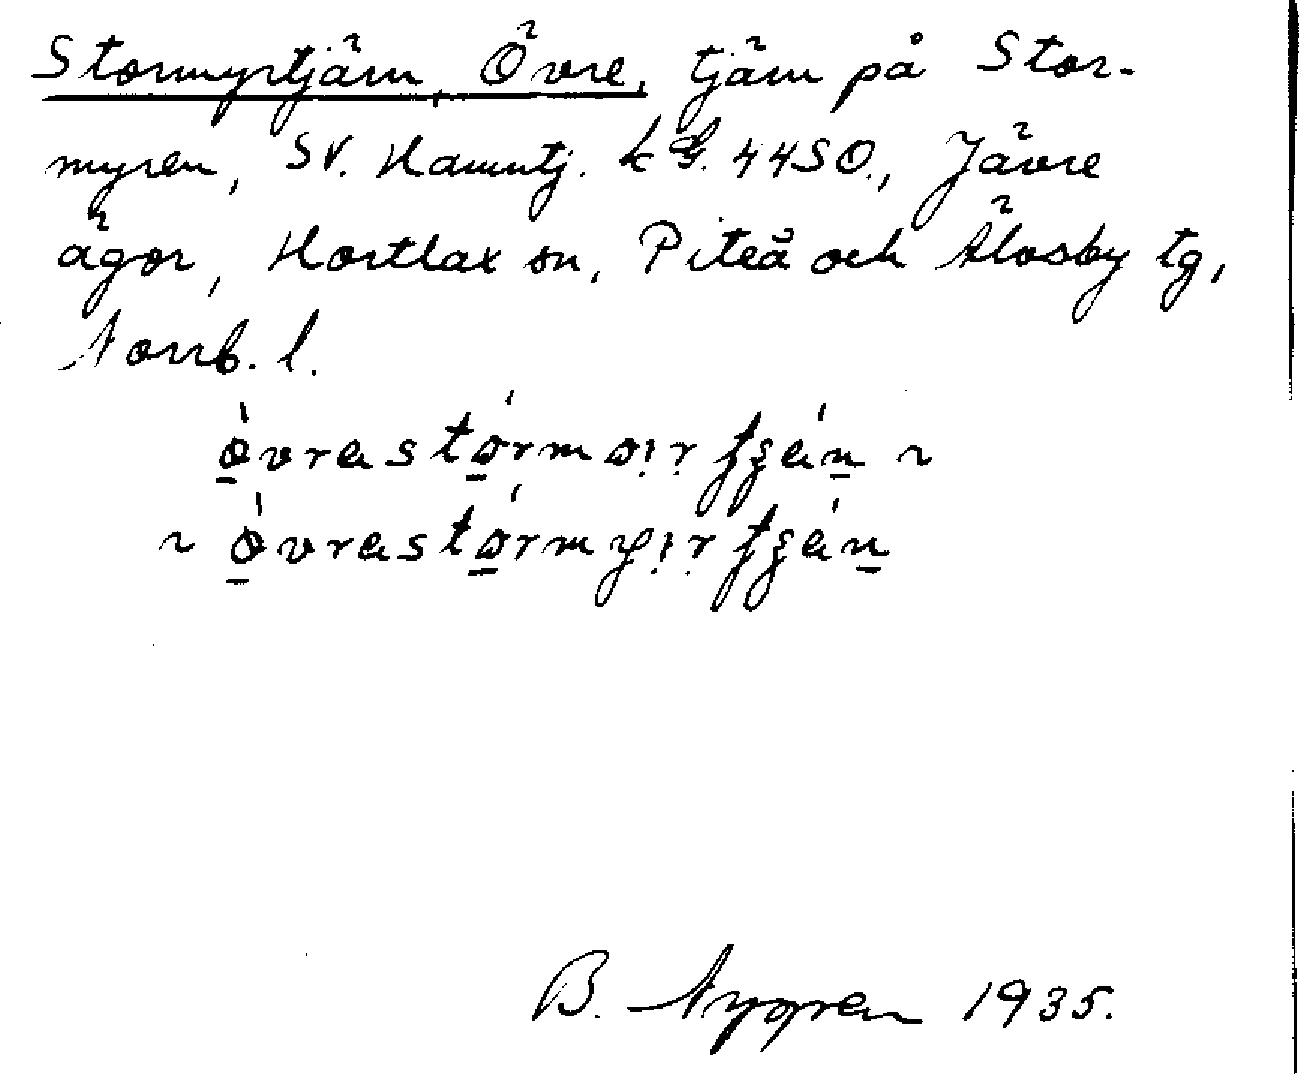 Stormyrtjärn, Övre, tjärn på Stor-
myren, SV. Hamntj. k G. 44SO., Jävre
ägor, Hortlax sn, Piteå och Älvsby tg,
Norrb. l.
B. Nygren 1935.